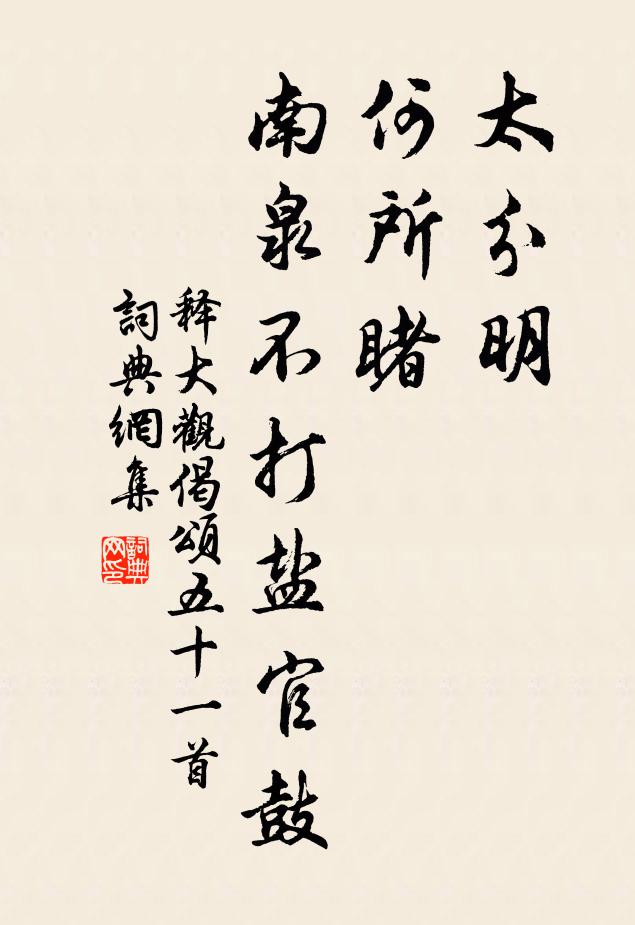 太分明
何所睹
南泉不打盐官鼓
释大觀偈頌五十一首
詞典網集
詞典
网印